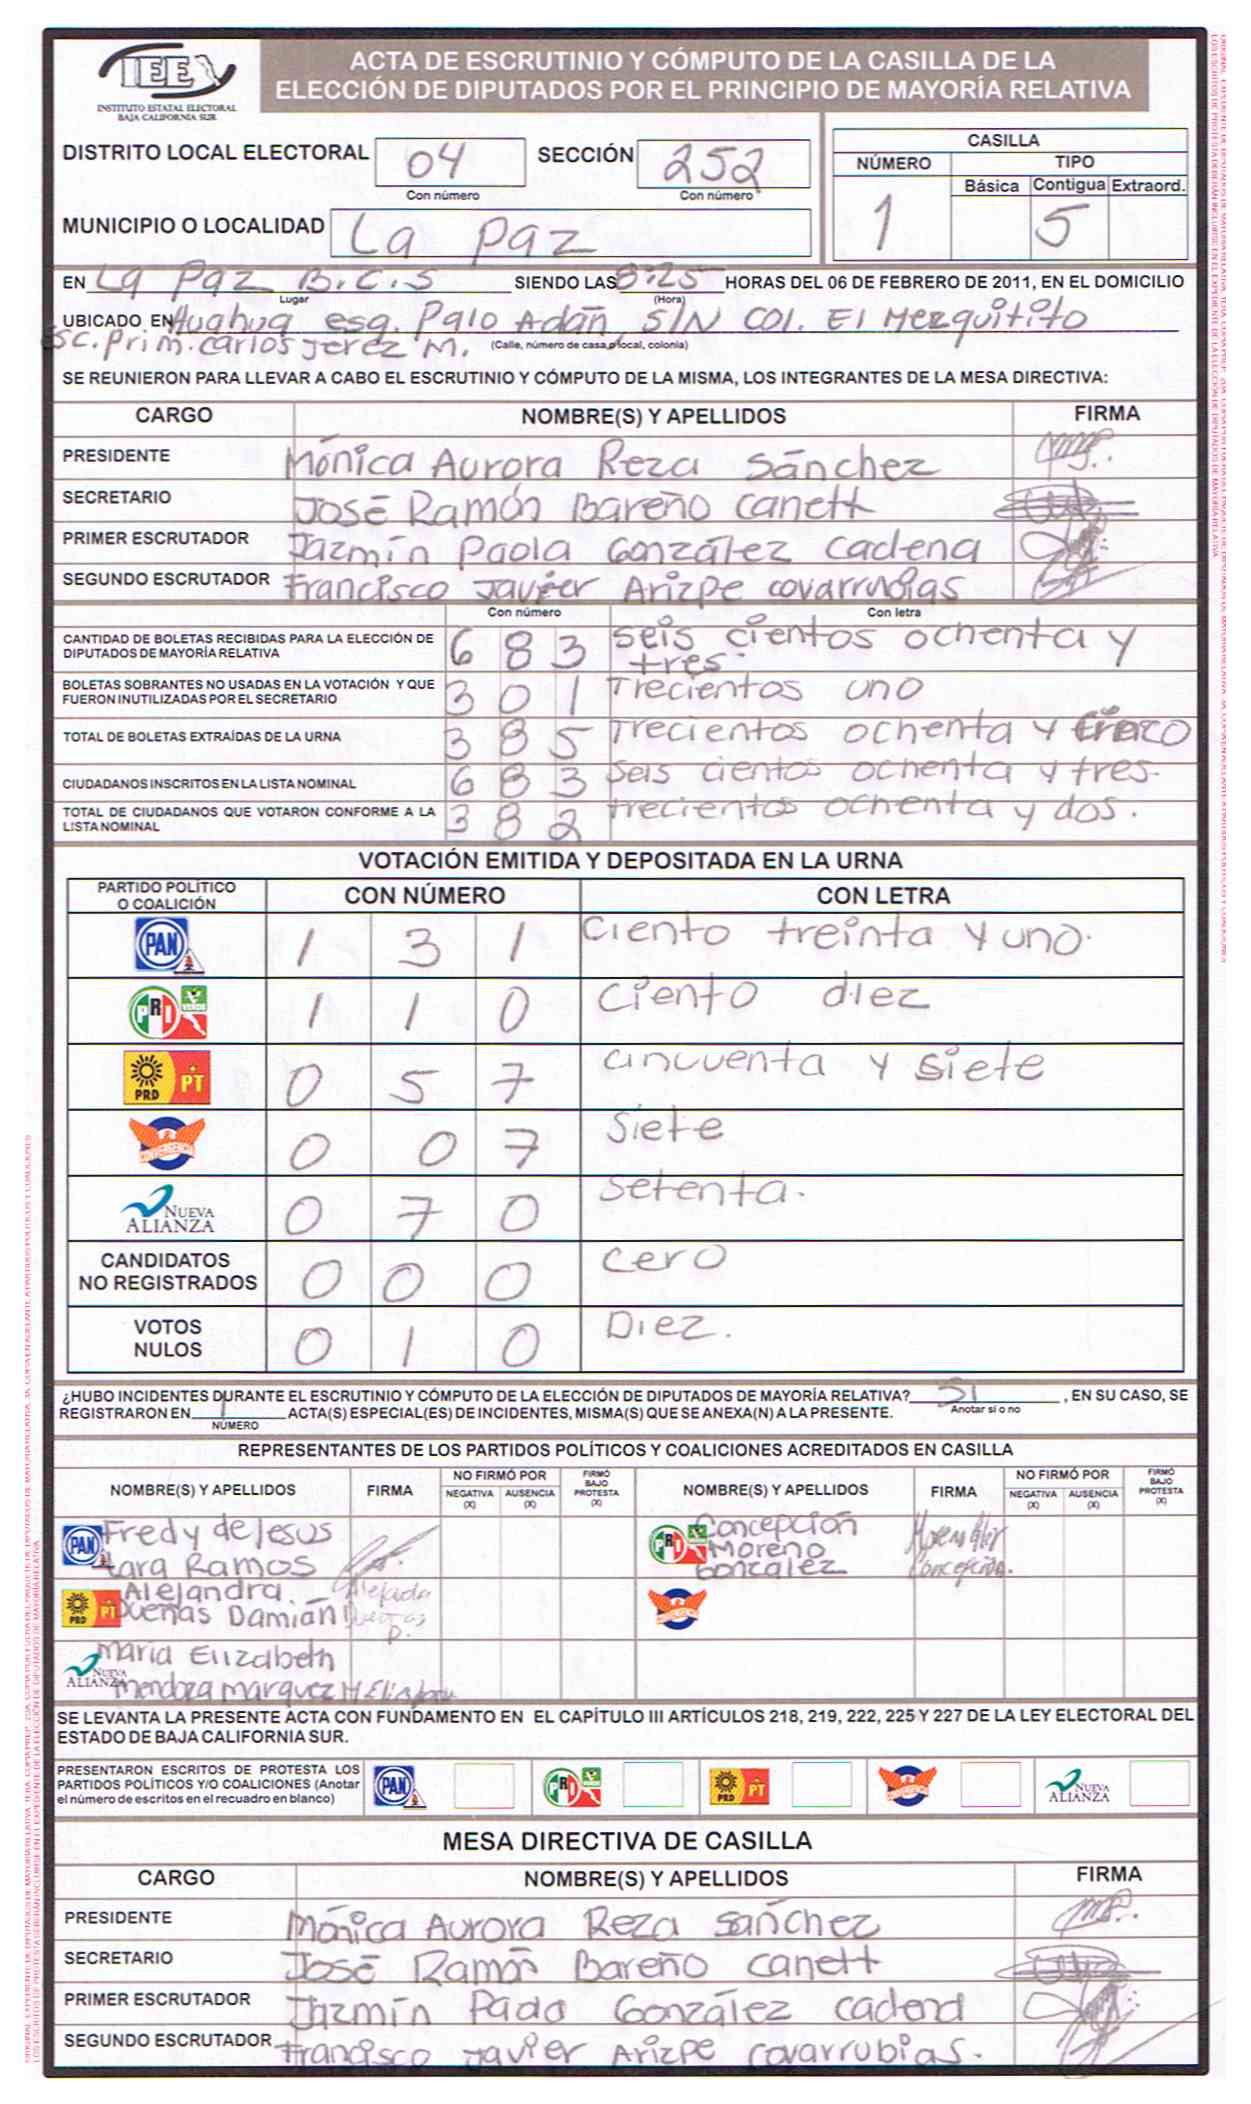 IEE
INSTITUTO ESTATAL ELECTORAL
BAJA CALIFORNIA SUR
ACTA DE ESCRUTINIO Y CÓMPUTO DE LA CASILLA DE LA
ELECCIÓN DE DIPUTADOS POR EL PRINCIPIO DE MAYORÍA RELATIVA
DISTRITO LOCAL ELECTORAL 04 SECCIÓN 252
Con número Con número
CASILLA
NÚMERO TIPO
Básica Contigua Extraord.
1 5
MUNICIPIO O LOCALIDAD La Paz
EN La Paz B.C.S SIENDO LAS 8:25 HORAS DEL 06 DE FEBRERO DE 2011, EN EL DOMICILIO
Lugar (Hora)
UBICADO EN Huahua esq. Palo Adán, S/N Col. El Mezquitito
Esc. Prim. Carlos Jerez M. (Calle, número de casa o local, colonia)
SE REUNIERON PARA LLEVAR A CABO EL ESCRUTINIO Y CÓMPUTO DE LA MISMA, LOS INTEGRANTES DE LA MESA DIRECTIVA:
CARGO NOMBRE(S) Y APELLIDOS FIRMA
PRESIDENTE Mónica Aurora Reza Sánchez
SECRETARIO José Ramón Bareño Canett
PRIMER ESCRUTADOR Jazmín Paola González Cadena
SEGUNDO ESCRUTADOR Francisco Javier Arizpe Covarrubias
Con número Con letra
CANTIDAD DE BOLETAS RECIBIDAS PARA LA ELECCIÓN DE DIPUTADOS DE MAYORÍA RELATIVA 683 seis cientos ochenta y tres.
BOLETAS SOBRANTES NO USADAS EN LA VOTACIÓN Y QUE FUERON INUTILIZADAS POR EL SECRETARIO 301 Trecientos uno
TOTAL DE BOLETAS EXTRAÍDAS DE LA URNA 385 Trecientos ochenta y cinco
CIUDADANOS INSCRITOS EN LA LISTA NOMINAL 683 seis cientos ochenta y tres.
TOTAL DE CIUDADANOS QUE VOTARON CONFORME A LA LISTA NOMINAL 382 trecientos ochenta y dos.
VOTACIÓN EMITIDA Y DEPOSITADA EN LA URNA
PARTIDO POLÍTICO O COALICIÓN CON NÚMERO CON LETRA
PAN 1 3 1 Ciento treinta y uno.
PRI VERDE 1 1 0 Ciento diez
PRD PT 0 5 7 cincuenta y siete
CONVERGENCIA 0 0 7 Siete
NUEVA ALIANZA 0 7 0 Setenta.
CANDIDATOS NO REGISTRADOS 0 0 0 Cero
VOTOS NULOS 0 1 0 Diez.
¿HUBO INCIDENTES DURANTE EL ESCRUTINIO Y CÓMPUTO DE LA ELECCIÓN DE DIPUTADOS DE MAYORÍA RELATIVA? SI, EN SU CASO, SE
Anotar si o no
REGISTRARON EN 1 ACTA(S) ESPECIAL(ES) DE INCIDENTES, MISMA(S) QUE SE ANEXA(N) A LA PRESENTE.
NÚMERO
REPRESENTANTES DE LOS PARTIDOS POLÍTICOS Y COALICIONES ACREDITADOS EN CASILLA
NOMBRE(S) Y APELLIDOS FIRMA NO FIRMÓ POR NEGATIVA (X) AUSENCIA (X) FIRMÓ BAJO PROTESTA (X) NOMBRE(S) Y APELLIDOS FIRMA NO FIRMÓ POR NEGATIVA (X) AUSENCIA (X) FIRMÓ BAJO PROTESTA (X)
PAN Fredy de Jesus Lara Ramos
PRI Concepción Moreno González
PRD PT Alejandra Dueñas Damián
NUEVA ALIANZA María Elizabeth Mendoza Marquez
SE LEVANTA LA PRESENTE ACTA CON FUNDAMENTO EN EL CAPÍTULO III ARTÍCULOS 218, 219, 222, 225 Y 227 DE LA LEY ELECTORAL DEL
ESTADO DE BAJA CALIFORNIA SUR.
PRESENTARON ESCRITOS DE PROTESTA LOS
PARTIDOS POLÍTICOS Y/O COALICIONES (Anotar
el número de escritos en el recuadro en blanco)
PAN PRI VERDE PRD PT NUEVA ALIANZA
MESA DIRECTIVA DE CASILLA
CARGO NOMBRE(S) Y APELLIDOS FIRMA
PRESIDENTE Mónica Aurora Reza Sánchez
SECRETARIO José Ramón Bareño Canett
PRIMER ESCRUTADOR Jazmín Paola González Cadena
SEGUNDO ESCRUTADOR Francisco Javier Arizpe Covarrubias.